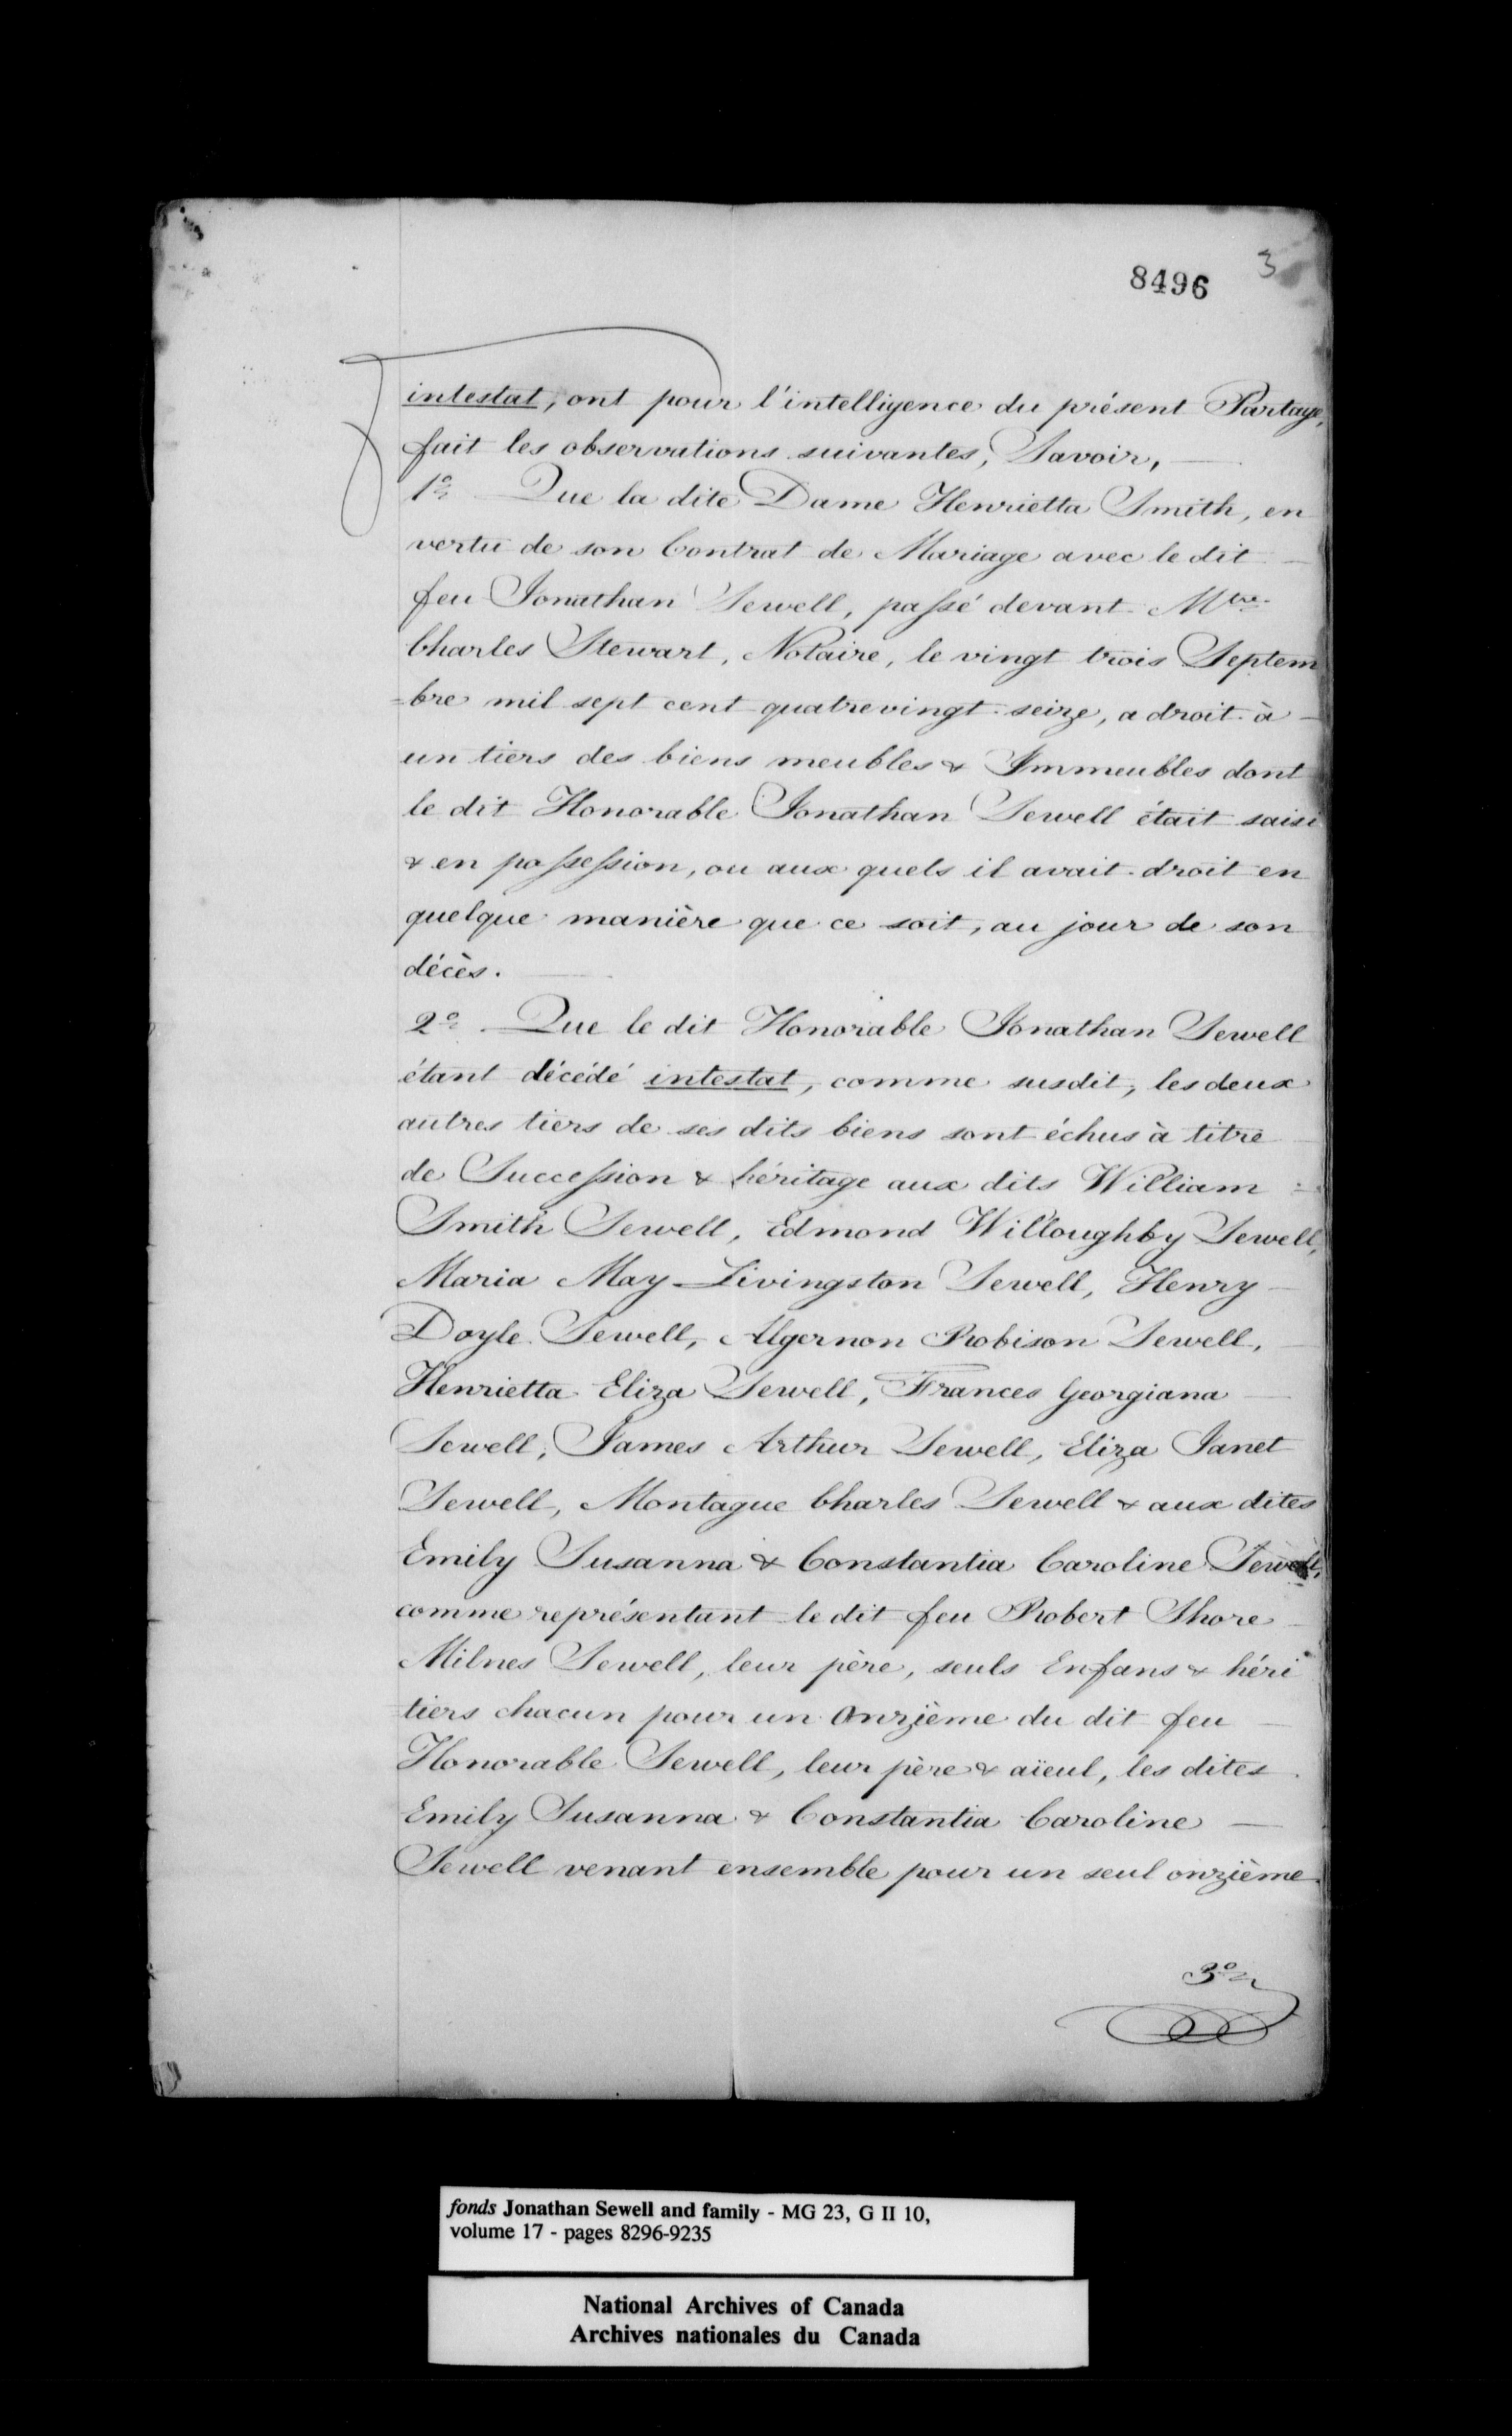 8496
3
intestat, ont pour l'intelligence du présent Partage,
fait les observations suivantes, Savoir, —
1º. Que la dite Dame Henrietta Smith, en
vertu de son Contrat de Mariage avec le dit —
feu Jonathan Sewell, passé devant Mtre
Charles Stewart, Notaire, le vingt trois Septem
=bre mil sept cent quatrevingt seize, a droit à —
un tiers des biens meubles & Immeubles dont
le dit Honorable Jonathan Sewell était saisi
& en possession, ou aux quels il avait droit en
quelque manière que ce soit, au jour de son
décès. —
2º. Que le dit Honorable Jonathan Sewell
étant décédé intestat, comme susdit, les deux
autres tiers de ses dits biens sont échus à titre
de Succession & héritage aux dits William =
Smith Sewell, Edmond Willoughby Sewell,
Maria May Livingston Sewell, Henry —
Doyle Sewell, Algernon Robison Sewell, —
Henrietta Eliza Sewell, Frances Georgiana —
Sewell, James Arthur Sewell, Eliza Janet
Sewell, Montague Charles Sewell & aux dites
Emily Susanna & Constantia Caroline Sewell,
comme représentant le dit feu Robert Shore —
Milnes Sewell, leur père, seuls Enfans & héri
=tiers chacun pour un Onzième du dit feu —
Honorable Sewell, leur père & aïeul, les dites
Emily Susanna & Constantia Caroline —
Sewell venant ensemble pour un seul onzième.
3º
fonds Jonathan Sewell and family - MG 23, G II 10,
volume 17 - pages 8296-9235
National Archives of Canada
Archives nationales du Canada